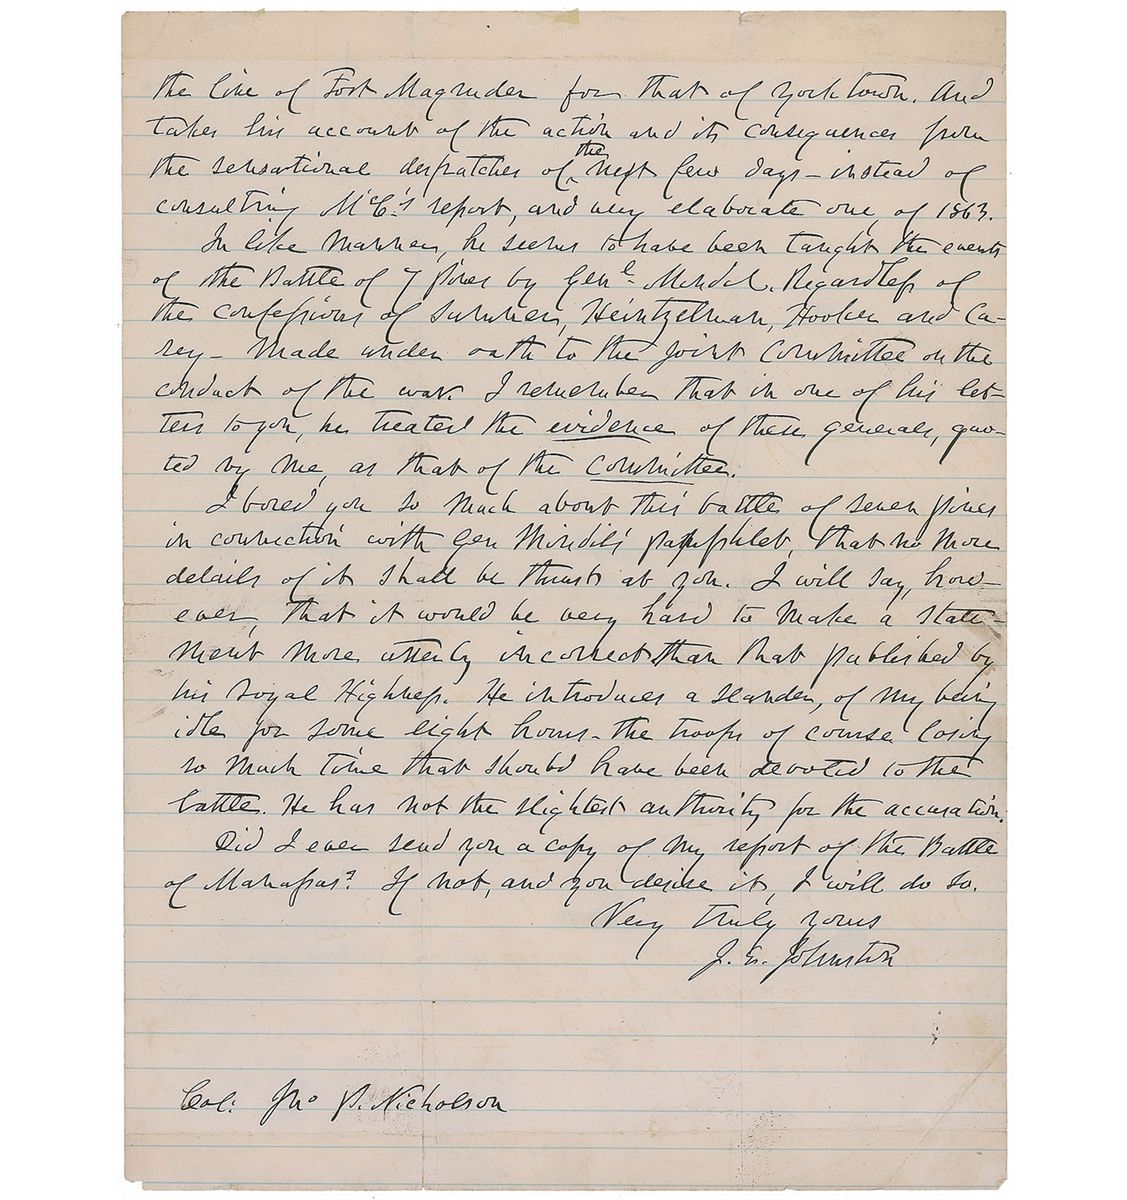 the line of Fort Magruder for that of Yorktown. And
takes his account of the action and its consequences from
the sensational despatches of the next few days – instead of
consulting McC's report, and very elaborate one, of 1863.
In like manner, he seems to have been taught the events
of the Battle of 7 pines by Genl Mindil. Regardless of
the confessions of Sumner, Heintzelman, Hooker and Ca-
sey – made under oath to the Joint Committee on the
conduct of the war. I remember that in one of his let-
ters to you, he treated the evidence of these generals, quo-
ted by me, as that of the Committee.
I bored you so much about this battle of seven pines
in connection with Gen Mindil's pamphlet, that no more
details of it shall be thrust at you. I will say, how-
ever, that it would be very hard to make a state-
ment more utterly incorrect than that published by
his Royal Highness. He introduces a slander, of my being
idle for some eight hours – the troops of course losing
so much time that should have been devoted to the
battle. He has not the slightest authority for the accusation.
Did I ever send you a copy of my report of the Battle
of Manassas? If not, and you desire it, I will do so.
Very truly yours
J. E. Johnston
Col: Jno P. Nicholson